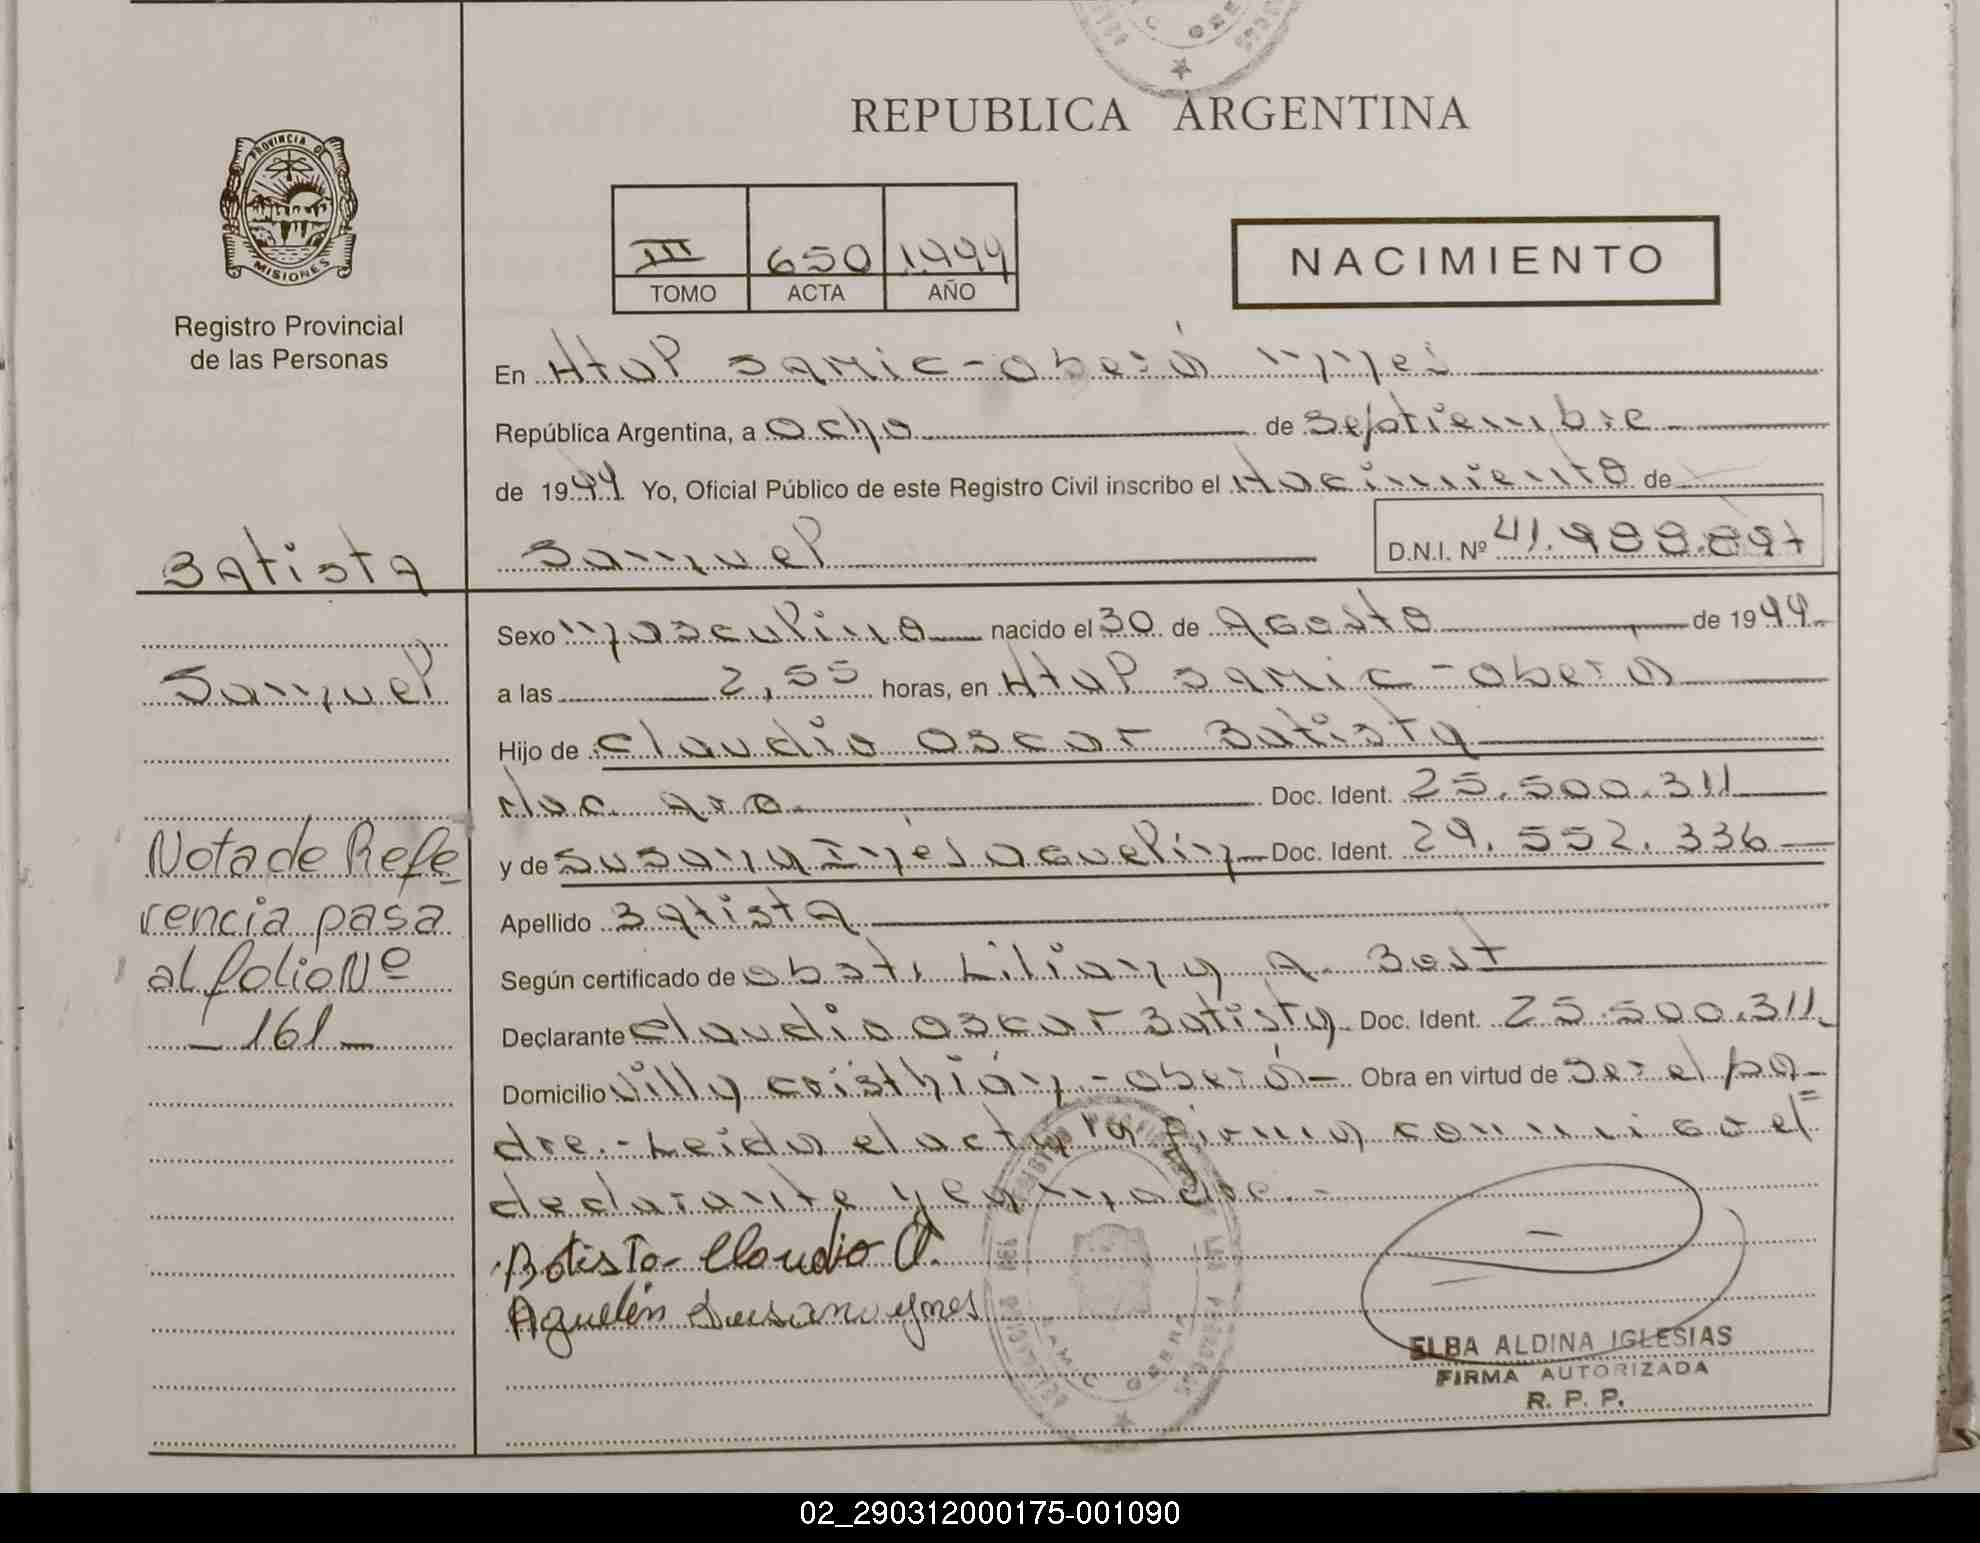 REPUBLICA ARGENTINA
PROVINCIA DE
MISIONES
Registro Provincial
de las Personas
III 650 1999
TOMO ACTA AÑO
NACIMIENTO
En Htal SAMIC - Oberá Mnes
República Argentina, a Ocho de Septiembre
de 1999 Yo, Oficial Público de este Registro Civil inscribo el Nacimiento de
Samuel D.N.I. Nº 41.988.897
Batista
Samuel
Sexo Masculino nacido el 30 de Agosto de 1999
a las 2,55 horas, en Htal SAMIC - Oberá
Hijo de Claudio Oscar Batista
Nac. Arg. Doc. Ident. 25.500.311
y de Susana Inés Aguelin Doc. Ident. 29.552.336
Apellido Batista
Según certificado de Obst. Liliana A. Bost
Declarante Claudio Oscar Batista Doc. Ident. 25.500.311
Domicilio Villa Cristhián - Oberá - Obra en virtud de ser el pa=
dre.- Leida el acta la firma conmigo el
declarante y la madre.-
Nota de Refe
rencia pasa
al folio Nº
- 161 -
Batista Claudio O.
Aguelin Susana Ynes
ELBA ALDINA IGLESIAS
FIRMA AUTORIZADA
R. P. P.
02_290312000175-001090